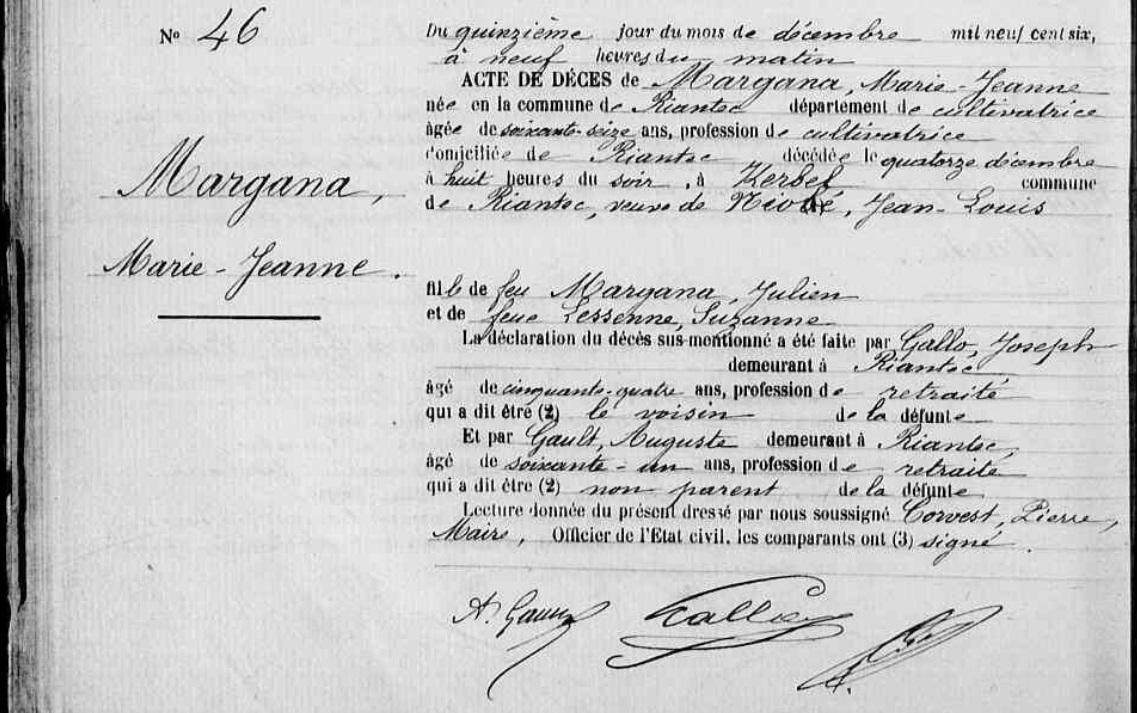 No 46
Du quinzième jour du mois de décembre mil neuf cent six,
à neuf heures du matin
ACTE DE DÉCES de Margana, Marie-Jeanne
née en la commune de Riantec département de cultivatrice
âgée de soixante-seize ans, profession de cultivatrice
domiciliée de Riantec décédée le quatorze décembre
à huit heures du soir, à Kerbel commune
de Riantec, veuve de Jean-Louis
Margana,
Marie-Jeanne.
fille de feu Margana, Julien
et de feue Lessenne, Suzanne
La déclaration du décès sus-mentionné a été faite par Gallo, Joseph
demeurant à Riantec
âgé de cinquante-quatre ans, profession de retraité
qui a dit être (2) le voisin de la défunte
Et par Gault, Auguste demeurant à Riantec,
âgé de soixante-un ans, profession de retraité
qui a dit être (2) non parent de la défunte
Lecture donnée du présent dressé par nous soussigné Corvest, Pierre,
Maire, Officier de l'Etat civil, les comparants ont (3) signé.
A. Gault Gallo